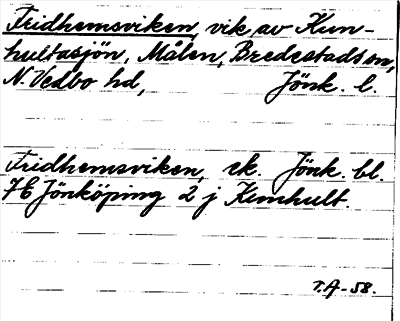 Fridhemsviken, vik av Kun-
hultasjön, Målen, Bredestads sn,
N. Vedbo hd, Jönk. l.
Fridhemsviken, ek. Jönk. bl.
7E Jönköping 2 j Kunhult.
T.A-58.